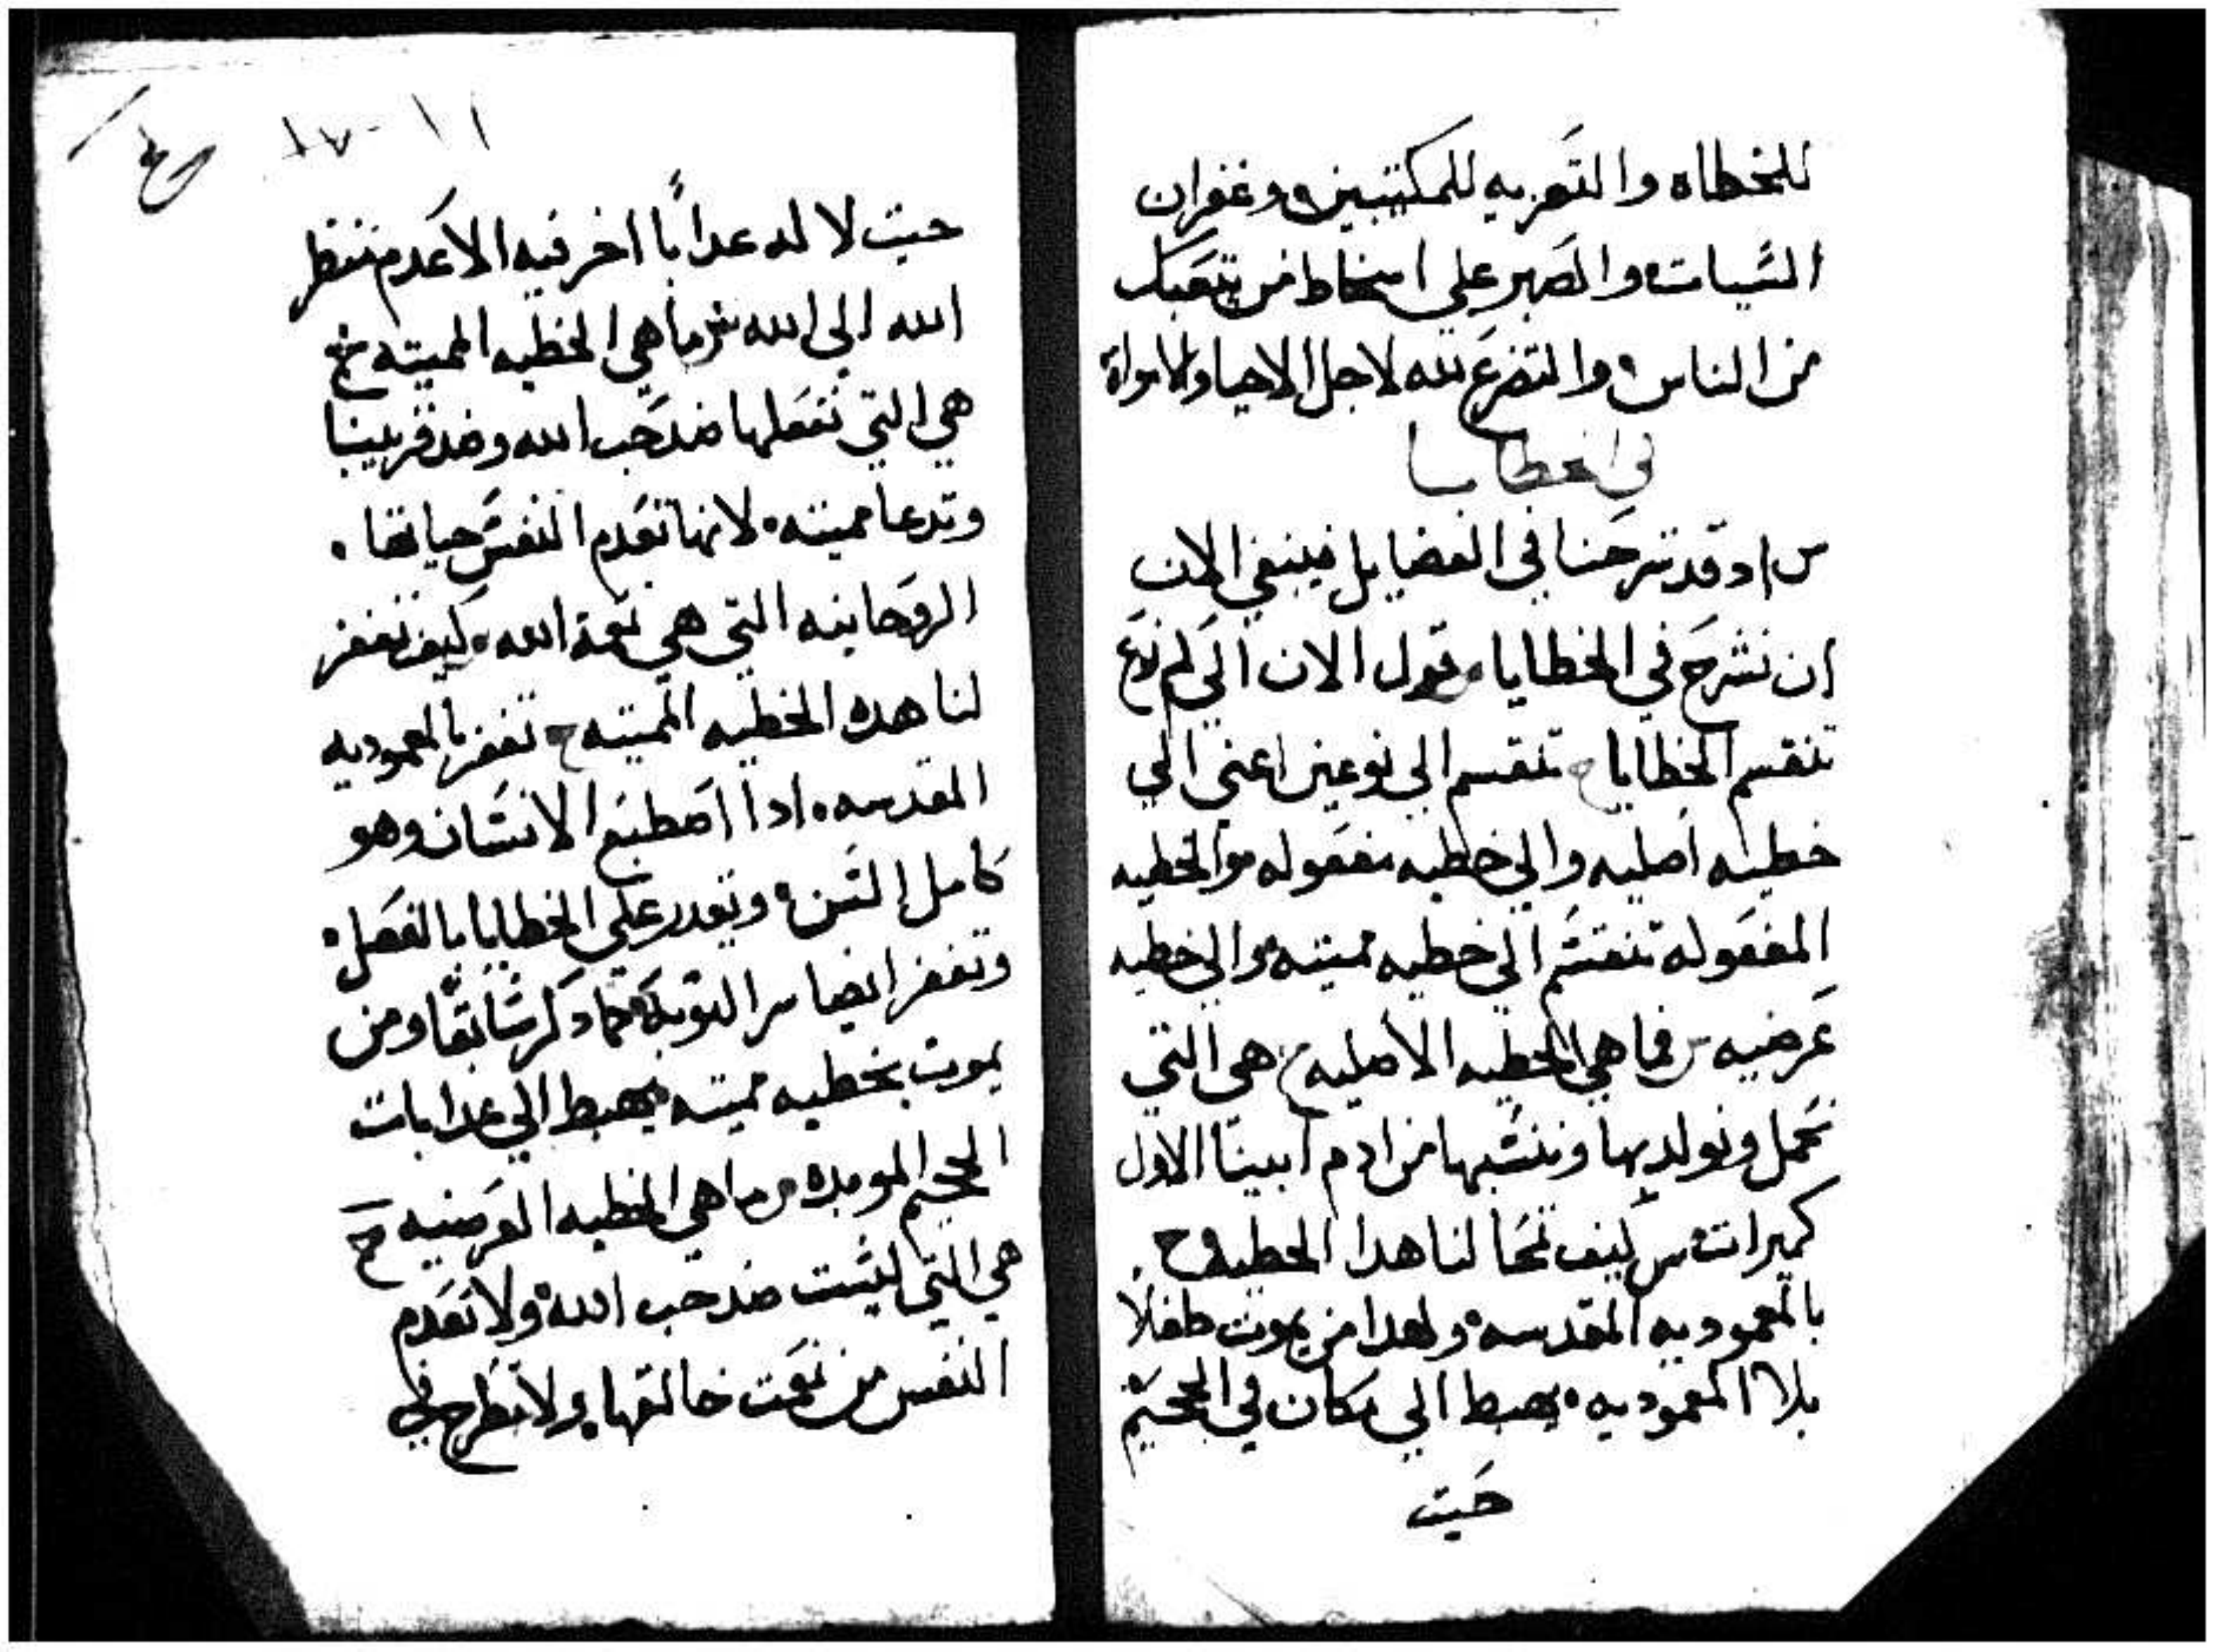 للخطاه والتعزيه للمكتئبين وغفران
السيات والصبر علي اسخاط من يتعبك
من الناس والتضرع لله لاجل الاحيا والامواة
في الخطايا
س اد قد شرحنا في الفضايل فينبغي الان
ان نشرح في الخطايا فقول الان الي كم نوع
تنقسم الخطايا ج تنقسم الي نوعين اعني الي
خطيه اصليه والي خطيه مفعوله والخطيه
المفعوله تنقسم الي خطيه مميته والي خطيه
عرضيه س فما هي الخطيه الاصليه ج هي التي
نحمل ونولد بها وننتسبها من ادم ابينا الاول
كميرات س كيف تمحا لنا هدا الخطيه ج
بالمعموديه المقدسه ولهدا من يموت طفلاً
بلا المعموديه يهبط الي مكان في الجحيم
حيت
١١ ١٧٠
حيت لا له عداباً اخر فيه الا عدم تنظر
الله الي الله س ما هي الخطيه المميته ج
هي التي نفعلها ضد حب الله وضد قريبنا
وتدعا مميته لانها تعدم النفس حياتها
الروحانيه التي هي نعمة الله كيف تغفر
لنا هده الخطيه المميته ج تغفر بالمعموديه
المقدسه ادا اصطبغ الانسان وهو
كامل السن ويقدر علي الخطايا بالفعل
وتغفر ايضا بسر التوبة كما دكر سابقًا ومن
يموت بخطيه مميته يهبط الي عدابات
الجحيم الموبده س ما هي الخطيه العرضيه ج
هي التي ليست ضد حب الله ولا تعدم
النفس من نعمت خالقها ولا تطرح في